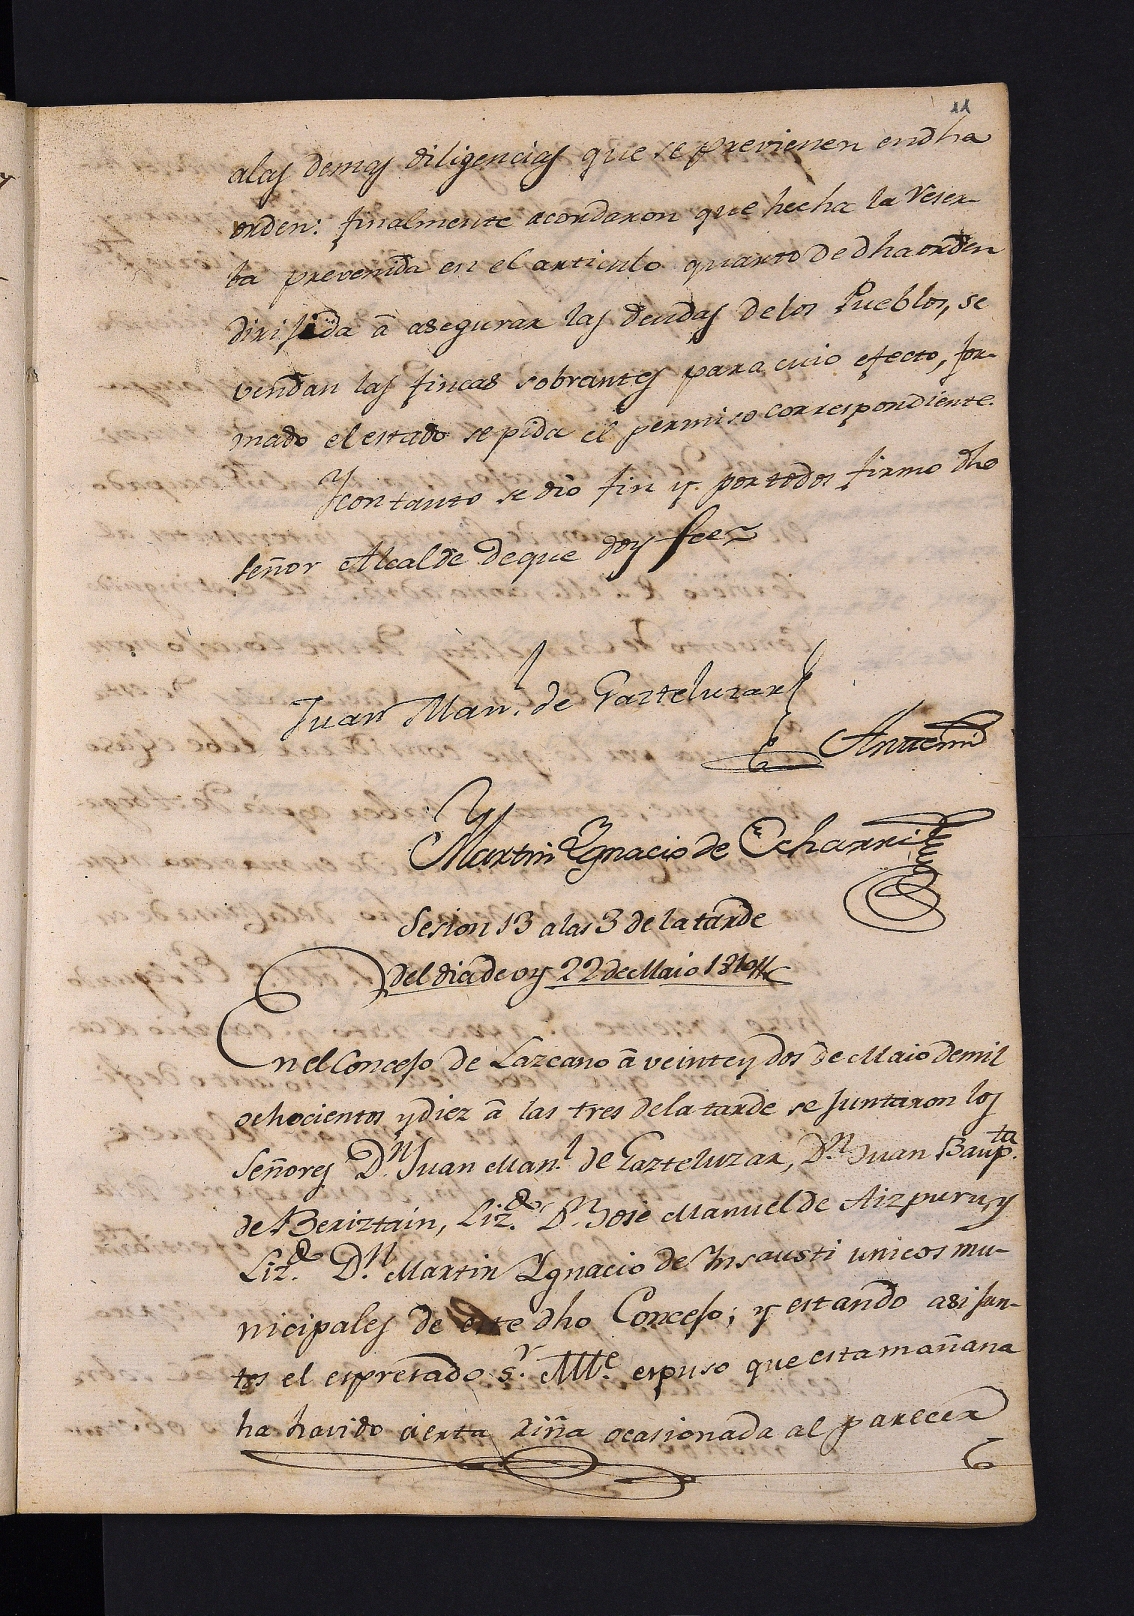 11
alas demas diligencias que se previenen en dha
orden: finalmente acordaron que hecha la reser-
ba prevenida en el articulo quarto de dha orden
dirijida â asegurar las deudas de los Pueblos, se
vendan las fincas sobrantes para cuio efecto, for-
mado el estado se pida el permiso correspondiente.
Y con tanto se dio fin y por todos firmo dho
señor Alcalde de que doy fee
Juan Man.l de Gazteluzar
Antemi
Martin Ygnacio de Echarri
Sesion 13 a las 3 de la tarde
del dia de oy 22 de Maio 1810
En el Concejo de Lazcano â veinte y dos de Maio de mil
ochocientos y diez â las tres de la tarde se juntaron los
Señores D.n Juan Man.l de Gazteluzar, D.n Juan Baup.ta
de Beriztain, Liz.do D.n Jose Manuel de Aizpuru, y
Liz.do D.n Martin Ygnacio de Insausti unicos mu-
nicipales de este dho Concejo; y estando asi jun-
tos el espresado S.r Alle. espuso que esta mañana
ha havido cierta riña ocasionada al parecer